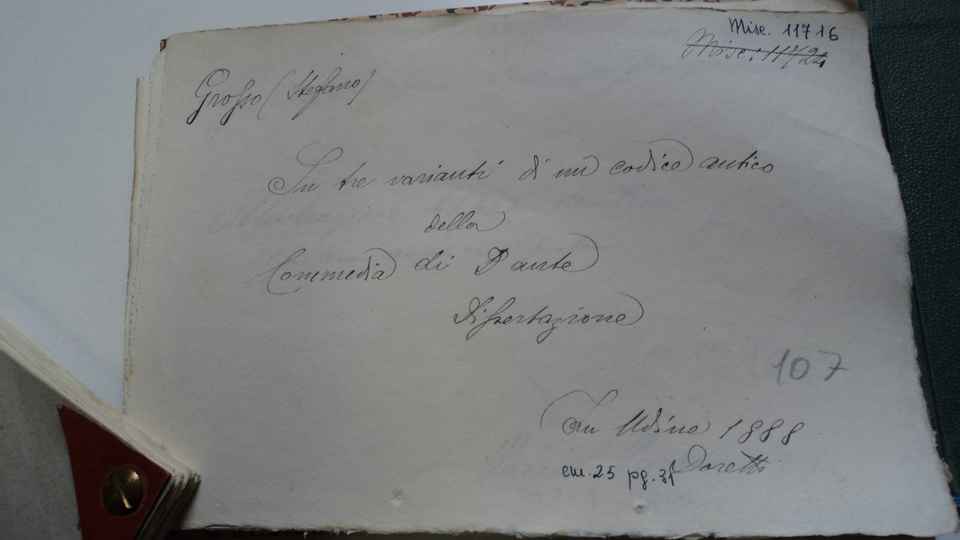 Misc. 11716
Misc. 11724
Grosso (Stefano)
Su tre varianti di un codice antico
della
Commedia di Dante
Dissertazione
107
In Udine 1888
cm. 25 pg. 31 Doretti